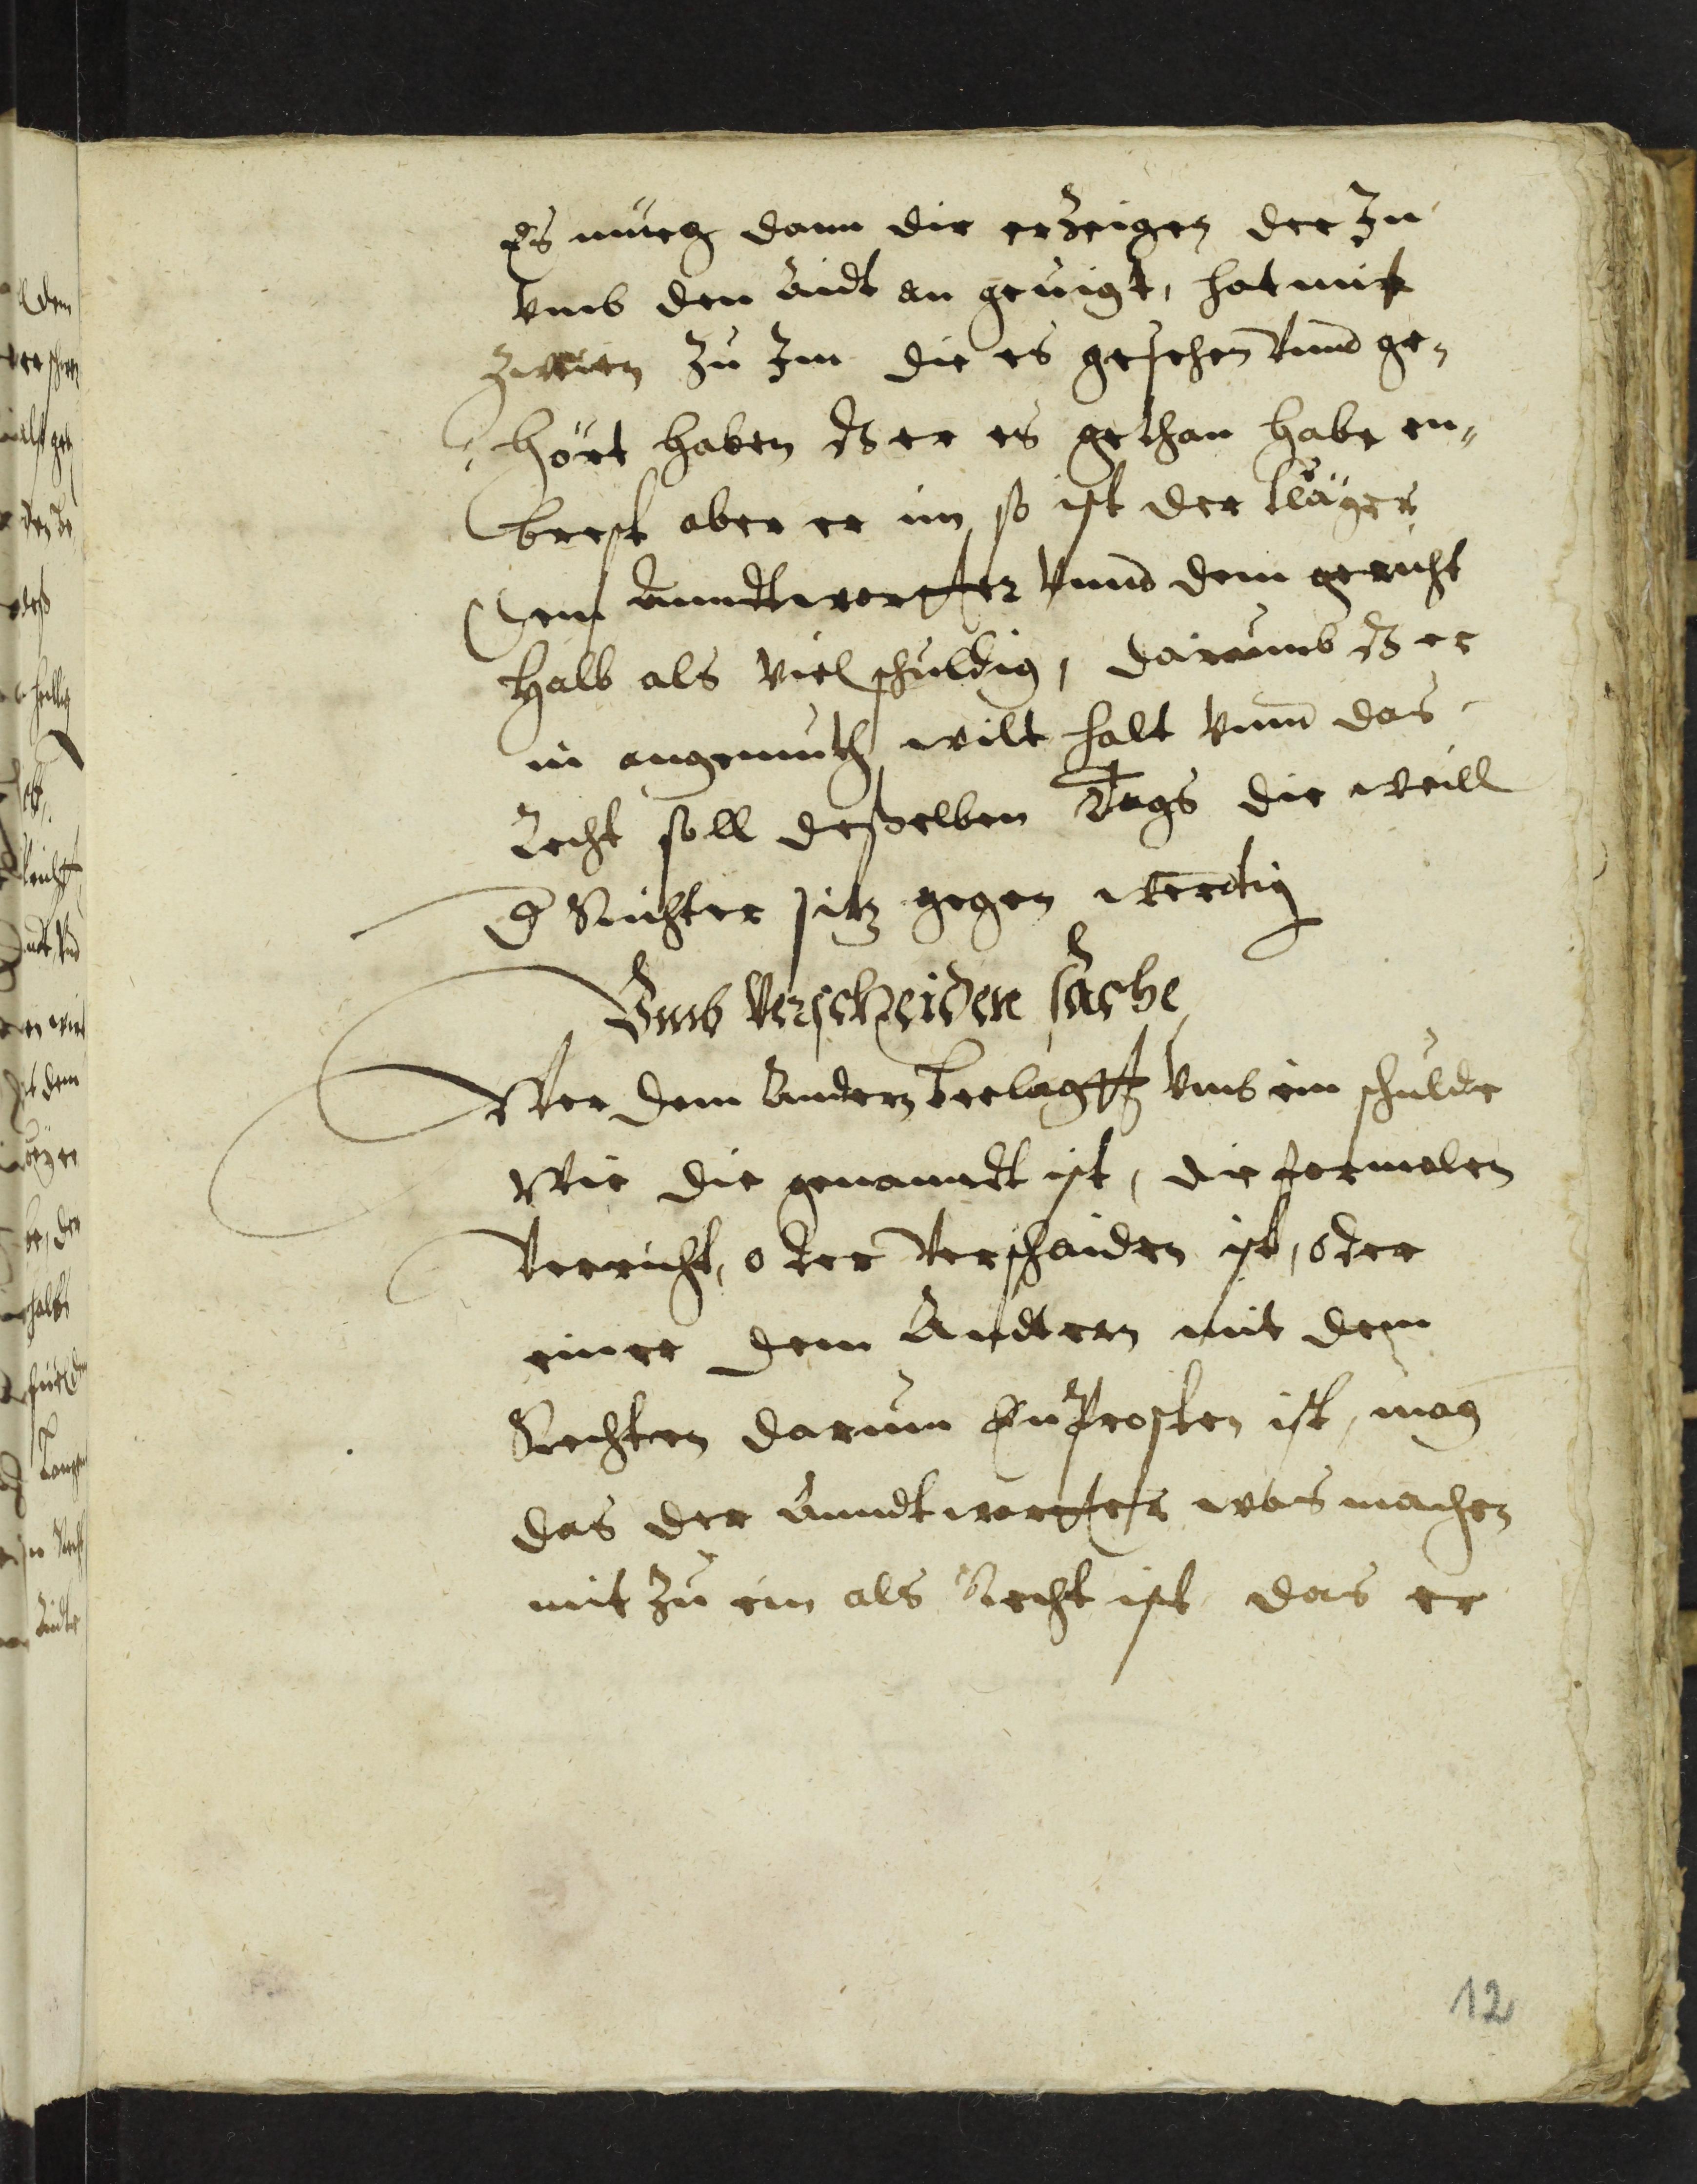 es mueg dann die erzeigen der Zu
vmb den Aidt an geuigt, hat mit
zweien zu Im die es gesehen vnnd ge„
hört haben dz er es gethan habe en„
brest aber er im so ist der Kläger
dem Anndtwortter vnnd dem gericht
Halb als viel schuldig, darumb dz er
in angemuth wilt halt vnnd das
Recht soll deßelben Tags die weill
d Richter sitz gegen werdtig
Vmb Verscheiden sache
Wer dem Andern beclagtt vmb ein schulde
Wie die genanndt ist, die formalen
Verricht, oder Verschaiden ist, oder
einer dem Andtern mit dem
Rechten darum Enprosten ist, mag
das der Anndtwortter war machen
mit Zu im als Recht ist das er
12